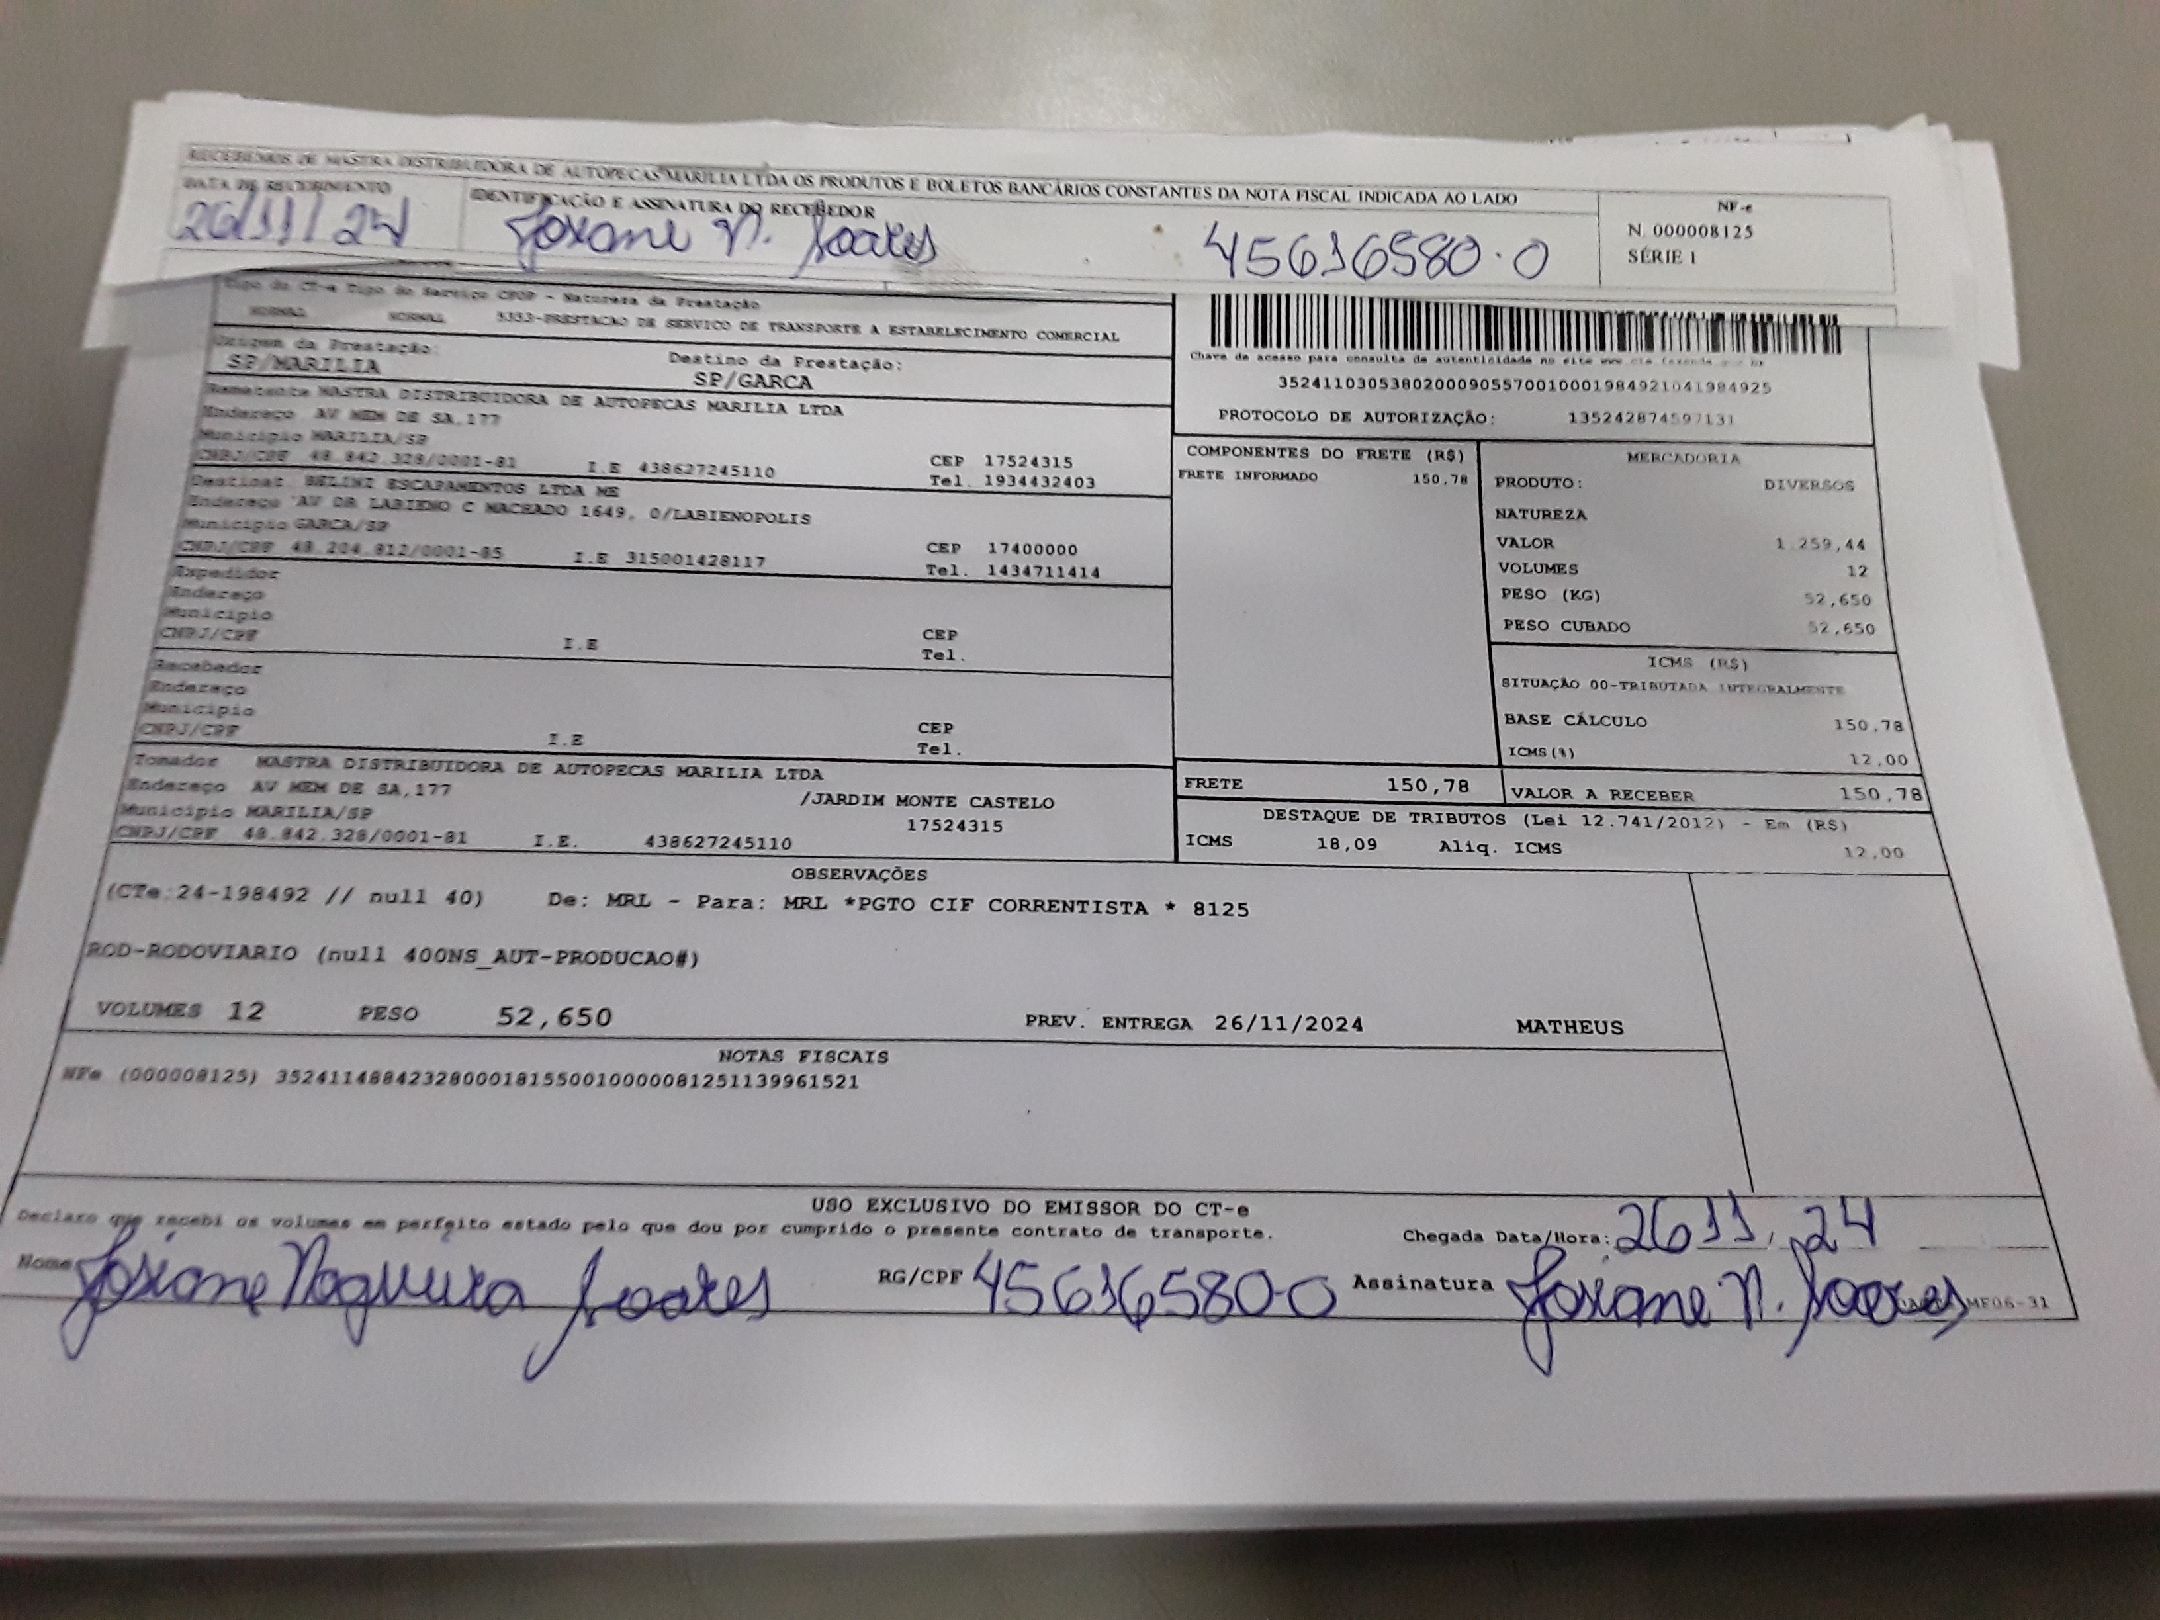 RECEBEMOS DE MASTRA DISTRIBUIDORA DE AUTOPECAS MARILIA LTDA OS PRODUTOS E BOLETOS BANCÁRIOS CONSTANTES DA NOTA FISCAL INDICADA AO LADO
DATA DE RECEBIMENTO
IDENTIFICAÇÃO E ASSINATURA DO RECEBEDOR
26/11/24 Josiane N. Soares 45616580-0
NF-e
N. 000008125
SÉRIE 1
Tipo do CT-e Tipo do Serviço CFOP - Natureza da Prestação
NORMAL NORMAL 5353-PRESTACAO DE SERVICO DE TRANSPORTE A ESTABELECIMENTO COMERCIAL
Origem da Prestação: Destino da Prestação:
SP/MARILIA SP/GARCA
Remetente MASTRA DISTRIBUIDORA DE AUTOPECAS MARILIA LTDA
Endereço AV MEM DE SA,177
Município MARILIA/SP CEP 17524315
CNPJ/CPF 48.842.328/0001-81 I.E 438627245110 Tel. 1934432403
Destinat. BELINI ESCAPAMENTOS LTDA ME
Endereço AV DR LABIENO C MACHADO 1649, 0/LABIENOPOLIS
Município GARCA/SP CEP 17400000
CNPJ/CPF 48.204.812/0001-85 I.E 315001428117 Tel. 1434711414
Expedidor
Endereço
Município CEP
CNPJ/CPF I.E Tel.
Recebedor
Endereço
Município CEP
CNPJ/CPF I.E Tel.
Tomador MASTRA DISTRIBUIDORA DE AUTOPECAS MARILIA LTDA
Endereço AV MEM DE SA,177 /JARDIM MONTE CASTELO
Município MARILIA/SP 17524315
CNPJ/CPF 48.842.328/0001-81 I.E. 438627245110
Chave de acesso para consulta de autenticidade no site www.cte.fazenda.gov.br
35241103053802000905570010001984921041984925
PROTOCOLO DE AUTORIZAÇÃO: 135242874597131
COMPONENTES DO FRETE (R$)
FRETE INFORMADO 150,78
MERCADORIA
PRODUTO: DIVERSOS
NATUREZA
VALOR 1.259,44
VOLUMES 12
PESO (KG) 52,650
PESO CUBADO 52,650
ICMS (R$)
SITUAÇÃO 00-TRIBUTADA INTEGRALMENTE
BASE CÁLCULO 150,78
ICMS(%) 12,00
FRETE 150,78 VALOR A RECEBER 150,78
DESTAQUE DE TRIBUTOS (Lei 12.741/2012) - Em (R$)
ICMS 18,09 Aliq. ICMS 12,00
OBSERVAÇÕES
(CTe:24-198492 // null 40) De: MRL - Para: MRL *PGTO CIF CORRENTISTA * 8125
ROD-RODOVIARIO (null 400NS_AUT-PRODUCAO#)
VOLUMES 12 PESO 52,650 PREV. ENTREGA 26/11/2024 MATHEUS
NOTAS FISCAIS
NFe (000008125) 35241148842328000181550010000081251139961521
USO EXCLUSIVO DO EMISSOR DO CT-e
Declaro que recebi os volumes em perfeito estado pelo que dou por cumprido o presente contrato de transporte. Chegada Data/Hora: 26 11 / 24
Nome Josiane Nogueira Soares RG/CPF 45616580-0 Assinatura Josiane N. Soares
MF06-31